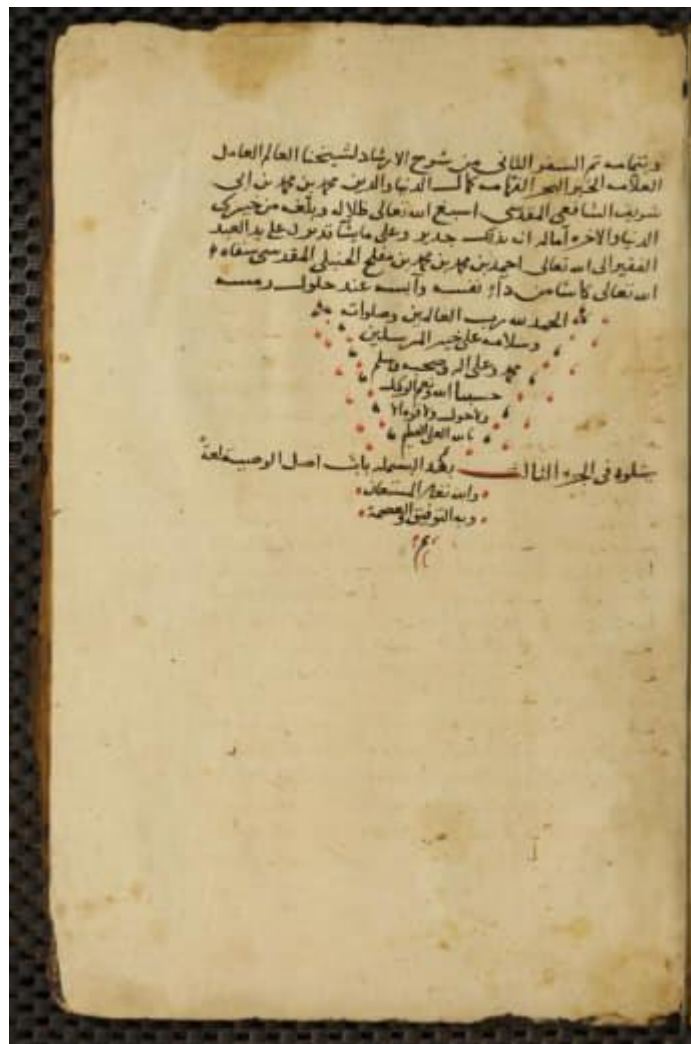 وبتمامه تم السفر الثاني من شرح الارشاد لشيخنا العالم العامل
العلامه الحبر البحر الفهامه كمال الدنيا والدين محمد بن محمد بن ابي
شريف الشافعي المقدسي اسبغ الله تعالى ظلاله وبلغه من خيري
الدنيا والاخره آماله انه بذلك جدير وعلى ما يشا قدير على يد العبد
الفقير الى الله تعالى احمد بن محمد بن محمد بن مفلح الحنبلي المقدسي سقاه
الله تعالى كاسا من نفسه وآنسه عند حلول رمسه
الحمد لله رب العالمين وصلواته
وسلامه على خير المرسلين
محمد وعلى اله وصحبه وسلم
حسبنا الله ونعم الوكيل
ولا حول ولا قوة الا
بالله العلي العظيم
يتلوه في الجزء الثالث بعد البسملة باب اصل الوصية
والله تعالى المستعان
وبه التوفيق والعصمة
م